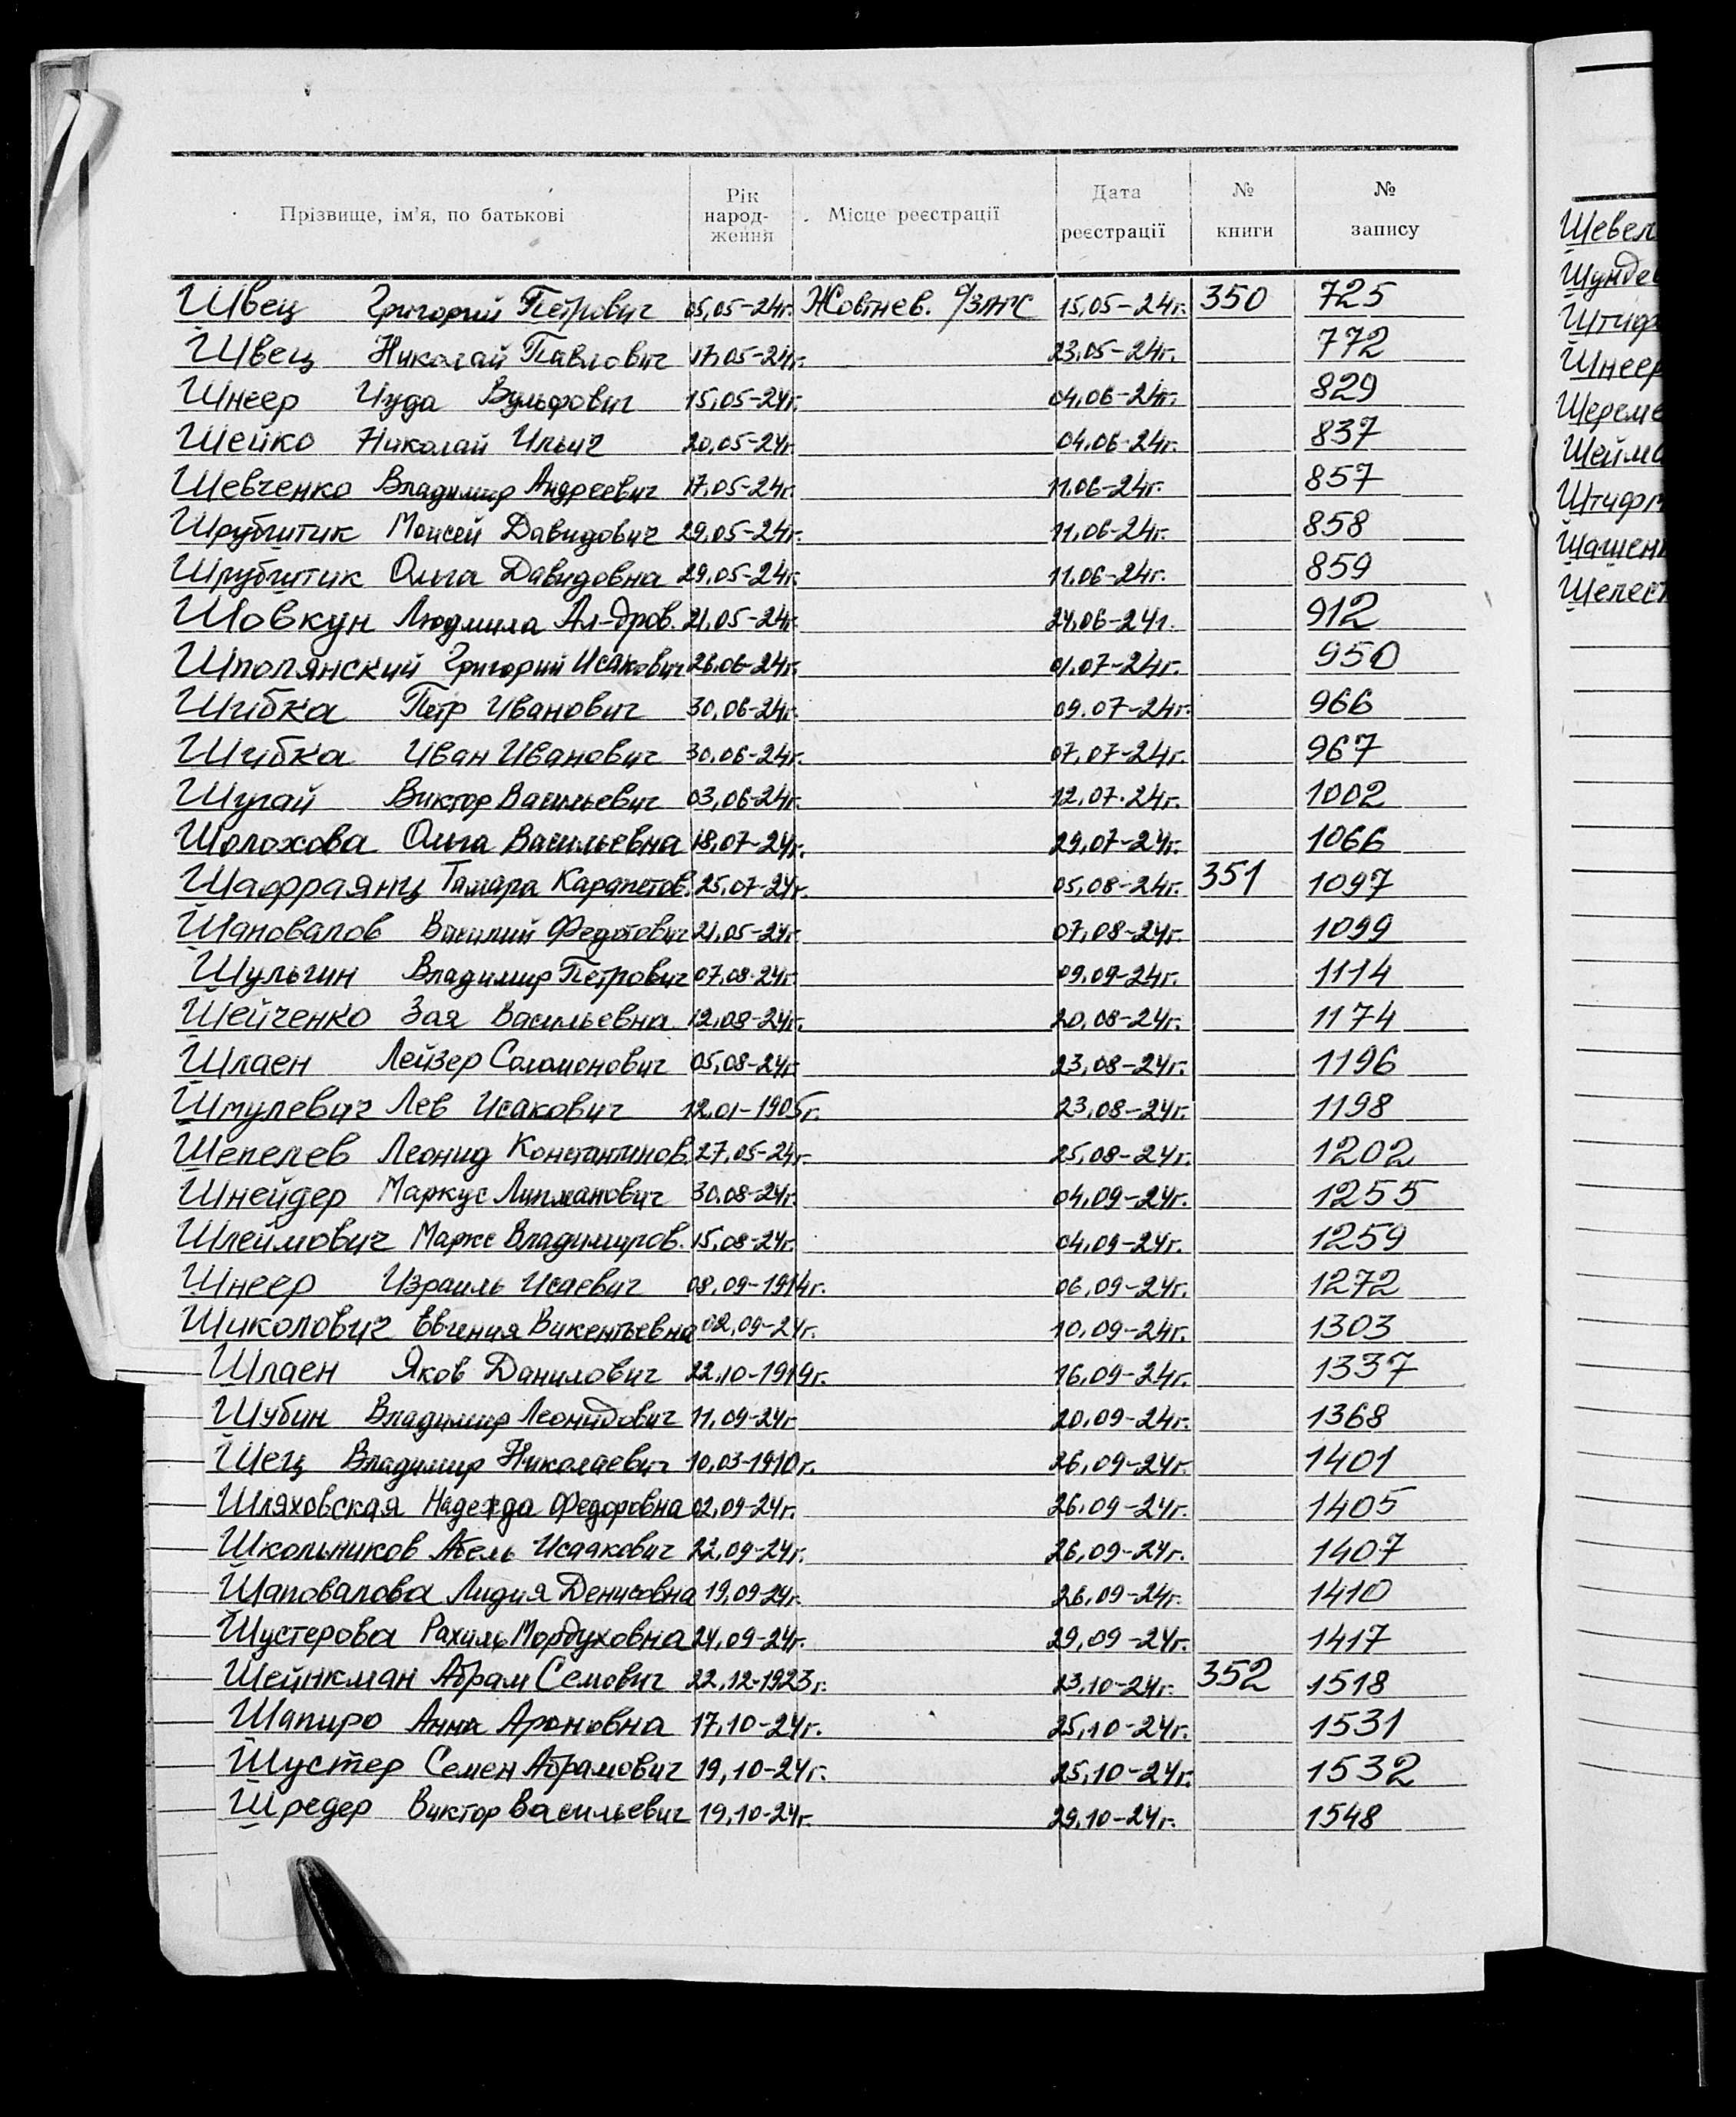 Прізвище, ім'я, по батькові Рік народ- ження Місце реєстрації Дата реєстрації № книги № запису
Швец Григорий Петрович 05,05-24г. Жовтнев. 15,05-24г. 350 725
Швец Николай Павлович 17,05-24г. 23,05-24г. 772
Шнеер Иуда Вульфович 15,05-24г. 04,06-24г. 829
Шейко Николай Ильич 20,05-24г. 04.06-24г. 837
Шевченко Владимир Андреевич 17,05-24г. 11.06-24г. 857
Шрубштик Моисей Давидович 29,05-24г. 11,06-24г. 858
Шрубштик Ольга Давидовна 29,05-24г. 11.06-24г. 859
Шовкун Людмила Ал-дров. 21,05-24г. 24,06-24г. 912
Шполянский Григорий Исакович 26.06-24г. 01.07-24г. 950
Шибка Петр Иванович 30,06-24г. 09.07-24г. 966
Шибка Иван Иванович 30.06-24г. 07,07-24г. 967
Шугай Виктор Васильевич 03,06-24г. 12,07.24г. 1002
Шолохова Ольга Васильевна 18,07-24г. 29,07-24г. 1066
Шафраянц Тамара Карапетов. 25,07-24г. 05,08-24г. 351 1097
Шановалов Василий Федотович 21,05-24г. 07,08-24г. 1099
Шульгин Владимир Петрович 07,08-24г. 09,09-24г. 1114
Шейченко Зая Васильевна 12,08-24г. 20,08-24г. 1174
Шлаен Лейзер Соломонович 05,08-24г. 23,08-24г. 1196
Шмулевич Лев Исакович 12,01-1905г. 23,08-24г. 1198
Шепелев Леонид Константинов. 27,05-24г. 25,08-24г. 1202
Шнейдер Маркус Липманович 30,08-24г. 04,09-24г. 1255
Шлеймович Маркс Владимиров. 15,08-24г. 04,09-24г. 1259
Шнеер Израиль Исаевич 08,09-1914г. 06,09-24г. 1272
Шиколович Евгения Викентьевна 02,09-24г. 10,09-24г. 1303
Шлаен Яков Данилович 22,10-1919г. 16,09-24г. 1337
Шубин Владимир Леонидович 11,09-24г. 20,09-24г. 1368
Шец Владимир Николаевич 10,03-1910г. 26,09-24г. 1401
Шляховская Надежда Федоровна 02,09-24г. 26,09-24г. 1405
Школьников Абель Исаакович 22,09-24г. 26,09-24г. 1407
Шаповалова Лидия Денисовна 19,09-24г. 26,09-24г. 1410
Шустерова Рахиль Мордуховна 24,09-24г. 29,09-24г. 1417
Шейнкман Абрам Семович 22,12-1923г. 23,10-24г. 352 1518
Шапиро Анна Ароновна 17,10-24г. 25,10-24г. 1531
Шустер Семен Абрамович 19,10-24г. 25,10-24г. 1532
Шредер Виктор Васильевич 19,10-24г. 29,10-24г. 1548